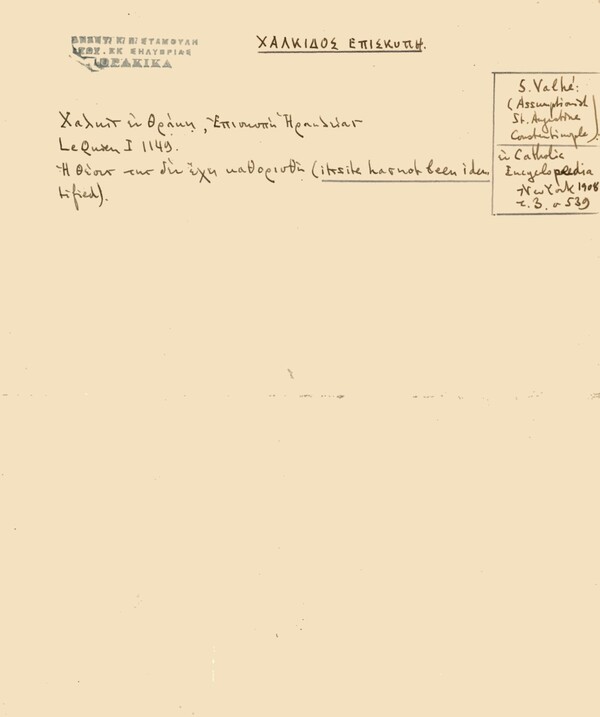 ΑΡΧΕΙ. ΕΚ ΣΗΛΥΒΡΙΑΣ
ΘΡΑΚΙΚΑ
ΧΑΛΚΙΔΟΣ ΕΠΙΣΚΥΠΗ.
S. Vailhé:
(Assumptionist
St. Augustine
Constantinople)
ἐν Catholic
Encyclopaedia
New York 1908
τ. 3. σ 539
Χαλκὶς ἐν Θράκῃ, Ἐπισκοπὴ Ἡρακλείας
Le Quien I 1149.
Ἡ θέσις της δὲν ἔχῃ καθορισθῆ (its site has not been iden
tified).